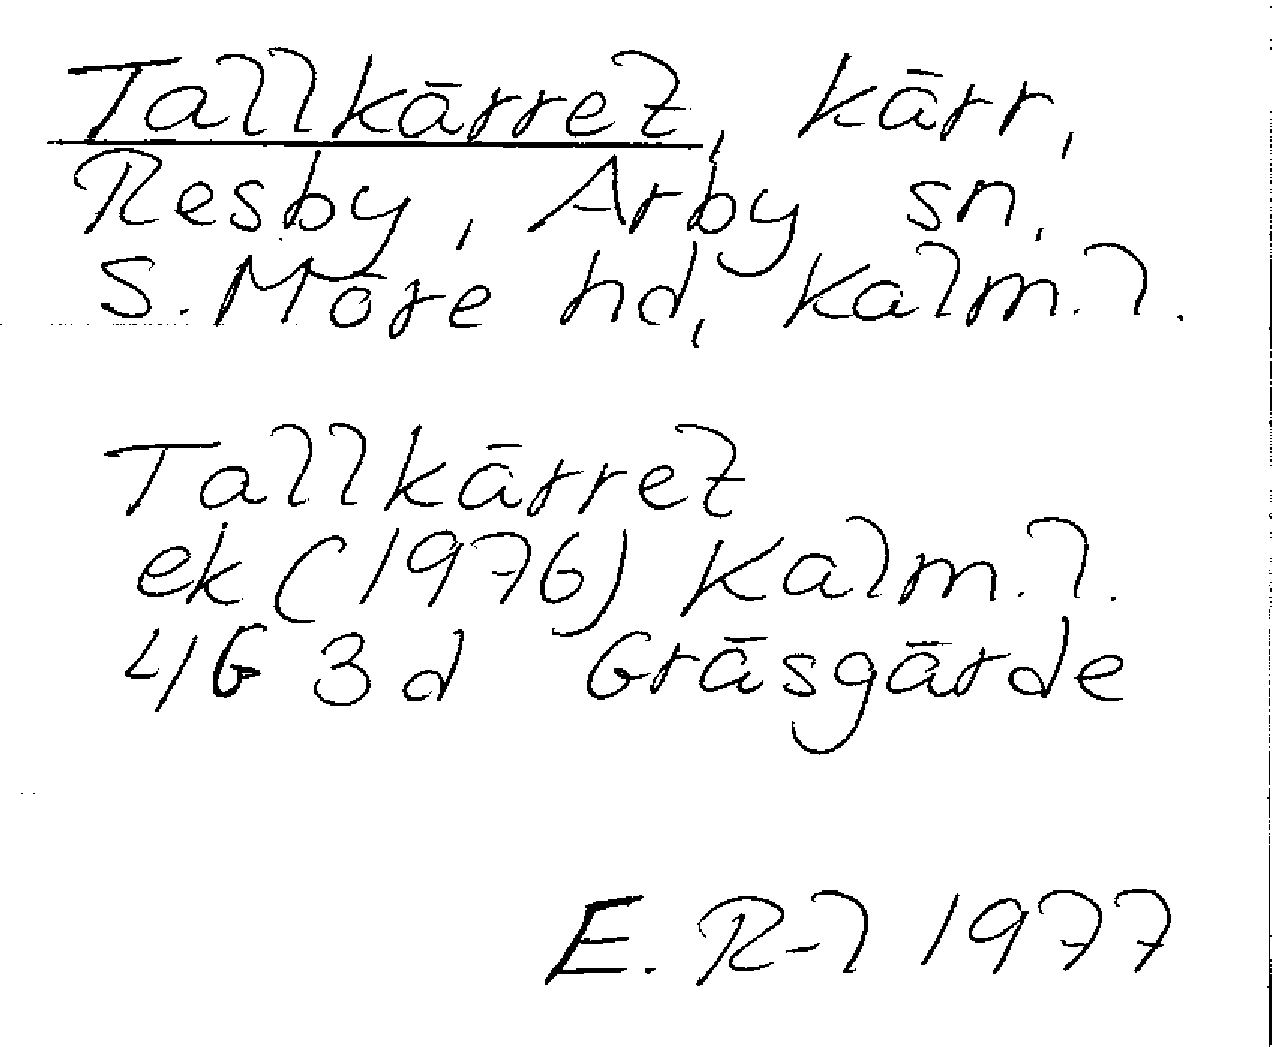 Tallkärret, kärr,
Resby, Arby sn,
S. Möre hd, Kalm. l.
Tallkärret
ek (1976) Kalm. l.
4G 3d Gräsgårde
E. R-l 1977